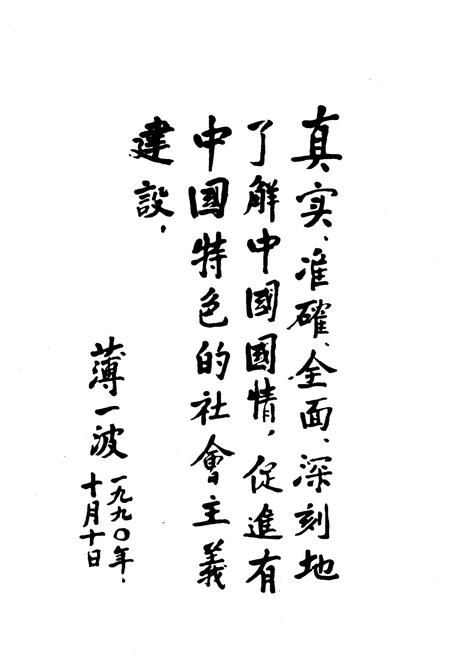 真实、准確、全面、深刻地
了解中國國情，促進有
中國特色的社會主義
建設，
薄一波
一九九〇年．
十月十日